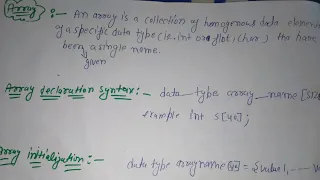 Array :- An array is a collection of homogenous data elemen
of a specific data type (i.e. int or flot, char) tha have
been a single name.
given
Array declaration syntax:- data_type array_name [siz
example int s[40];
Array initialization:- data type arrayname = {value1, ---- v